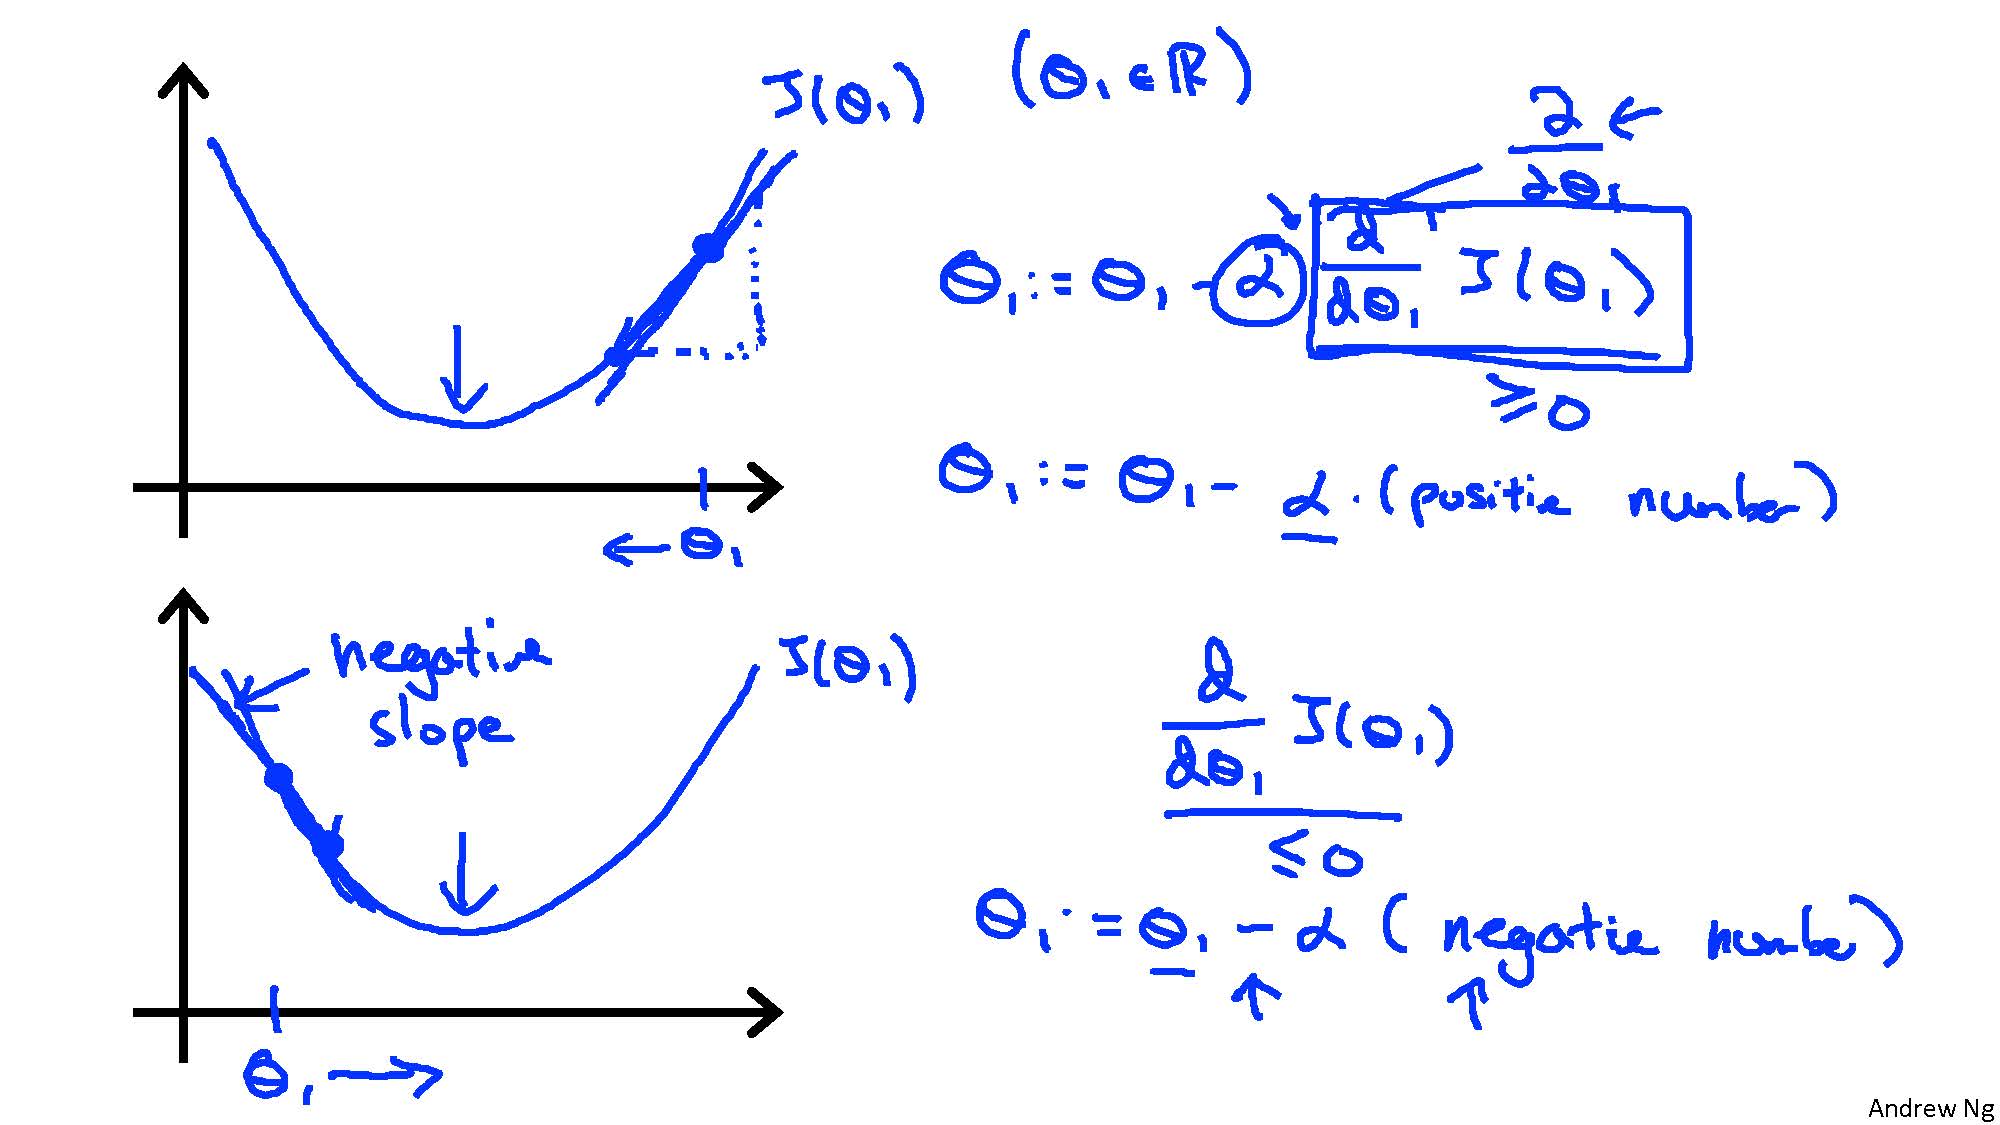 J(θ₁) (θ₁ ∈ ℝ)
∂
∂θ₁
θ₁ := θ₁ - α d/dθ₁ J(θ₁)
≥ 0
θ₁ := θ₁ - α · (positie number)
θ₁
negative
slope
J(θ₁)
d/dθ₁ J(θ₁)
≤ 0
θ₁ := θ₁ - α (negatie number)
θ₁
Andrew Ng